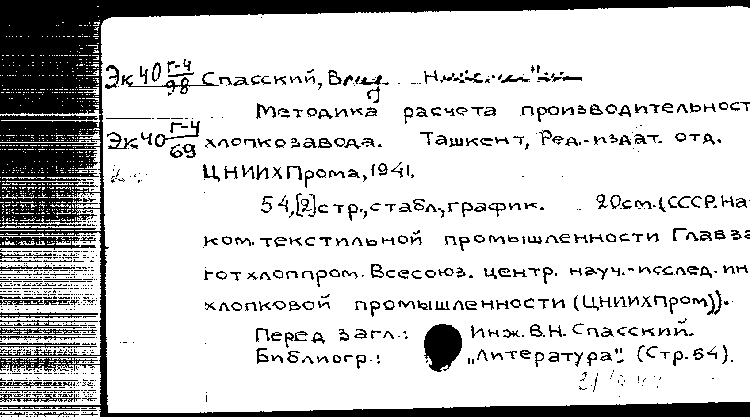 Эк40 Г-4/98 Спасский, В
Методика расчета производительност
Эк40 Г-4/69 хлопкозавода. Ташкент, Ред.-издат. отд.
ЦНИИХПрома, 1941.
54,[2]стр., с табл., график. 20см. (СССР. На
ком. текстильной промышленности Главза
готхлоппром. Всесоюз. центр. науч.-исслед. ин
хлопковой промышленности (ЦНИИХПром)).
Перед загл.: Инж. В.Н. Спасский.
Библиогр.: "Литература". (Стр. 54).